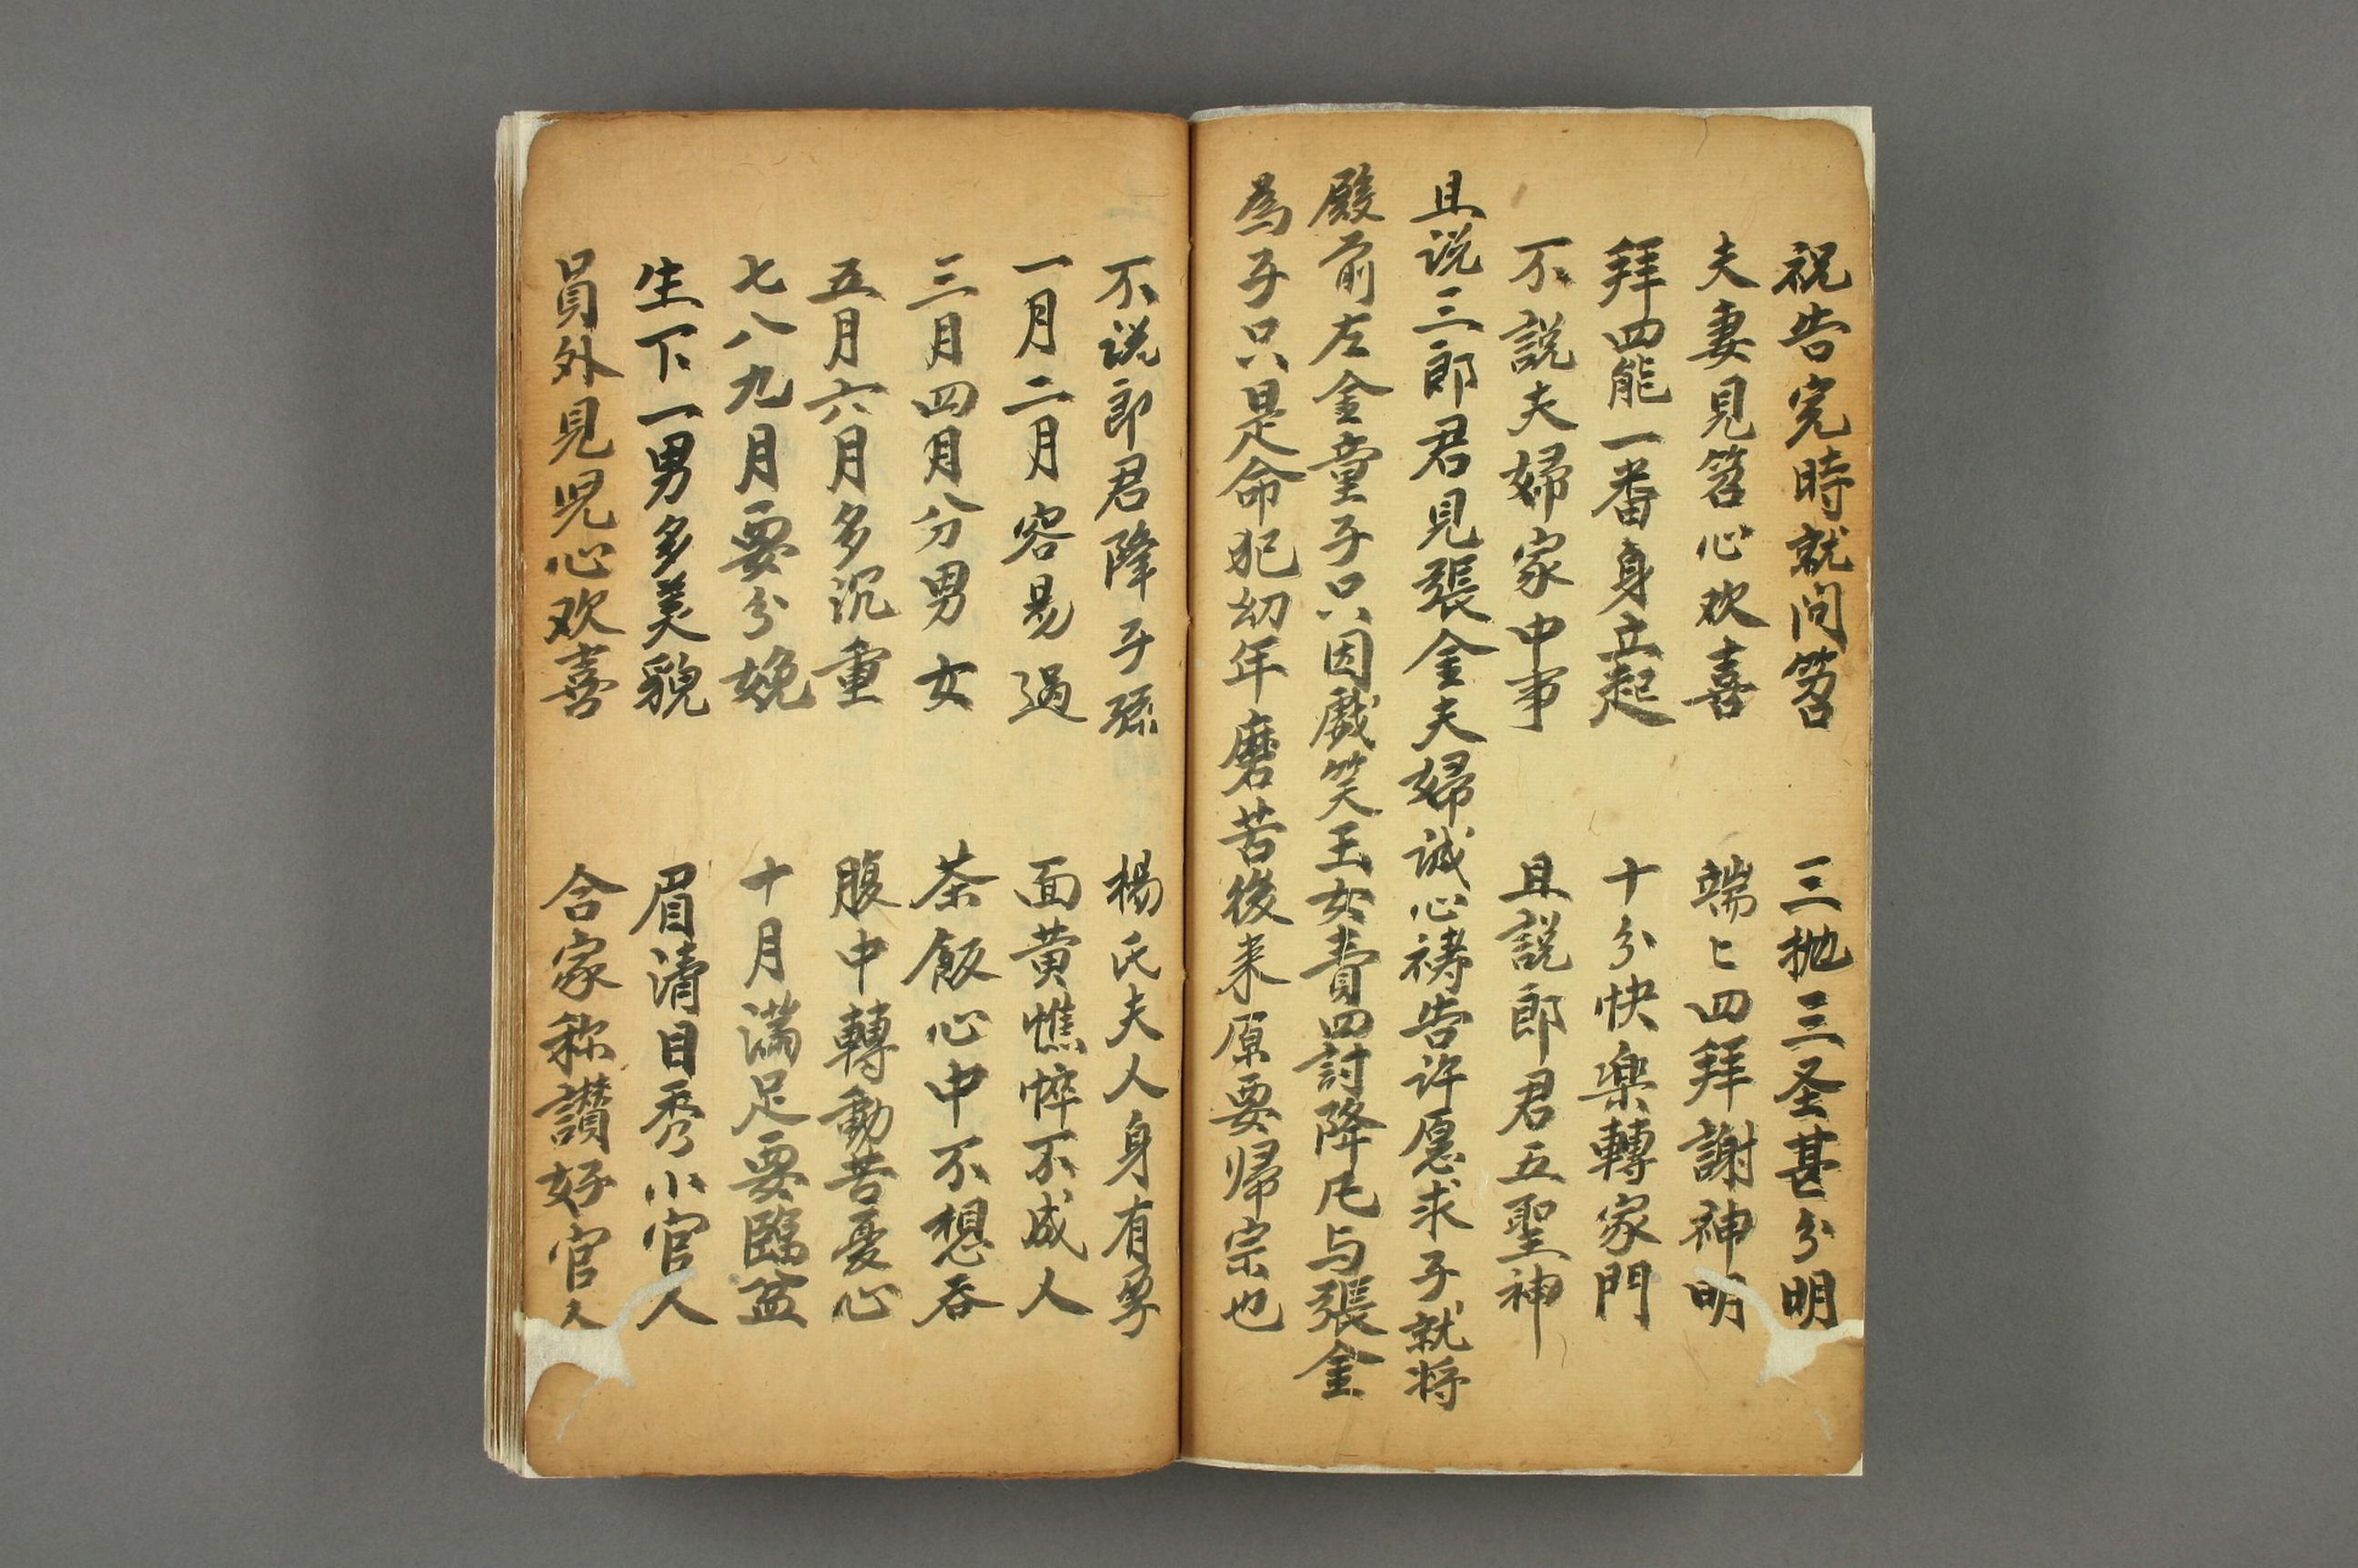 祝告完時就问筶　三抛三圣甚分明
夫妻見筶心欢喜　端〻四拜謝神明
拜四能一番身立起　十分快楽轉家門
不説夫婦家中事　且説郎君五聖神
且说三郎君見張金夫婦誠心祷告许愿求子就将
殿前左金童子只因戯笑玉女責四討降凡与張金
為子只是命犯幼年磨苦後来原要帰宗也
不说郎君降子孫　楊氏夫人身有孕
一月二月容易過　面黄憔悴不成人
三月四月分男女　茶飯心中不想吞
五月六月多沉重　腹中轉動苦憂心
七八九月要分娩　十月满足要臨盆
生下一男多美貌　眉清目秀小官人
員外見児心欢喜　合家称讃好官人